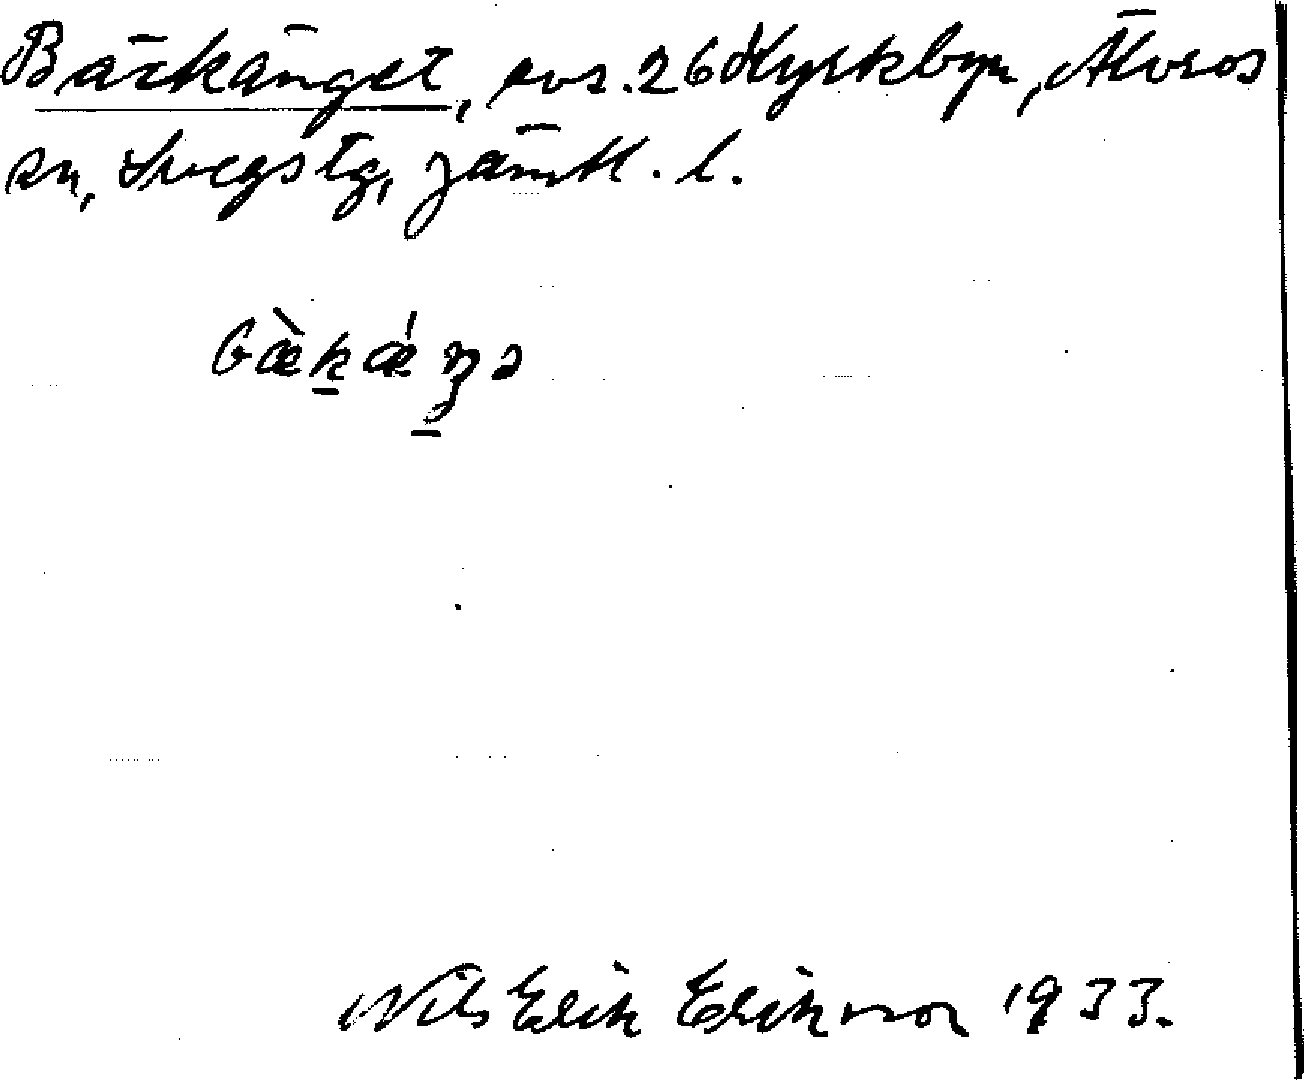 Bäckänget, avs. 26 Kyrkbyn, Älvros
sn, Svegs tg, Jämtl. l.
bæ̀k̠ǽŋ̠ə
Nils Erik Eriksson 1933.